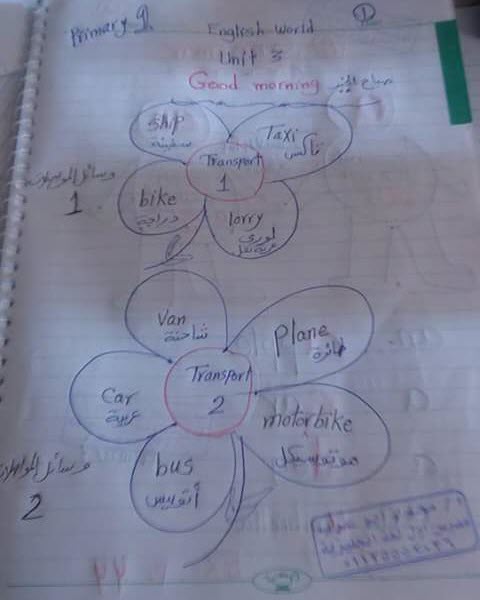 Primary 1
English World
1
Unit 3
Good morning صباح الخير
Ship
سفينة
Taxi
تاكس
وسائل المواصلات
1
Transport
1
bike
دراجة
lorry
لورى
عربة نقل
Van
شاحنة
Plane
طائرة
Car
عربية
Transport
2
motorbike
موتوسيكل
bus
أتوبيس
وسائل المواصلات
2